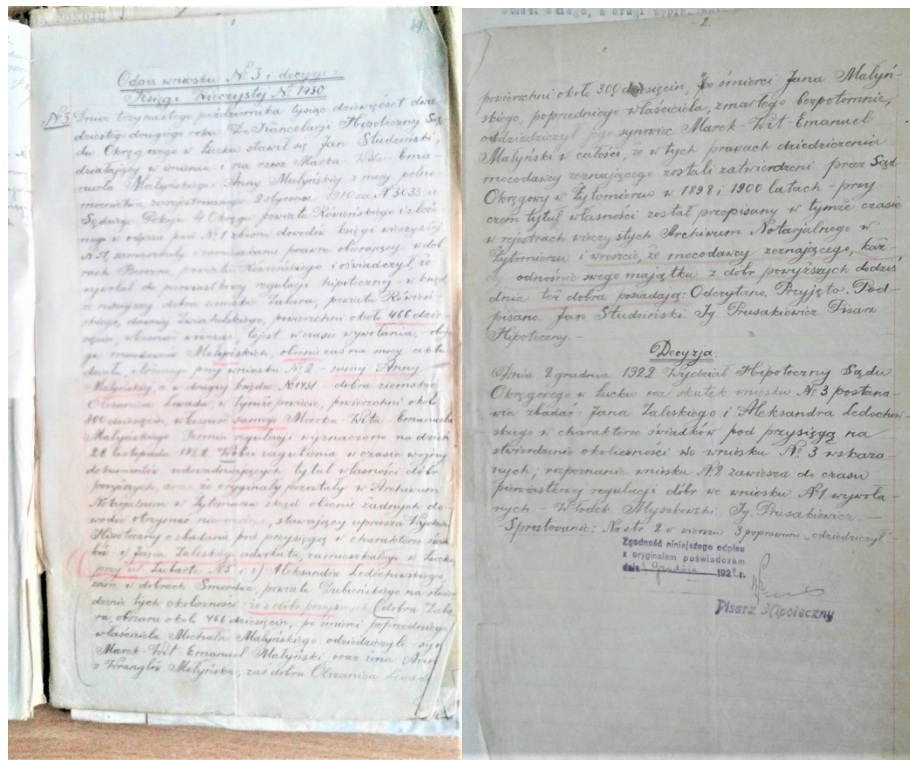 Odpis wniosku № 3 i decyzja
Księgi Wieczystej № 1430
№3 Dnia trzynastego października tysiąc dziewięćset dwu-
dziestego drugiego roku. Do Kancelarji Hipotecznej Są-
du Okręgowego w Łucku stawił się Jan Studziński,
działający w imieniu i na rzecz Marka-Wita-Ema-
nuela Małyńskiego i Anny Małyńskiej z mocy pełno-
mocnictwa, 2 stycznia 1910 za № 3033 u
Sędziego Pokoju 4 Okręgu powiatu Rówieńskiego i złożo-
nego w odpisie pod № 1 zbioru dowodów księgi wieczystej
№ 1, zamieszkanie prawne obierający w dob-
rach powiatu Rówieńskiego i oświadczył, że
wywołał do pierwiastkowej regulacji hipotecznej - w księdze
niniejszej dobra ziemskie Zabara, powiatu Rówień-
skiego, dawniej Zwiahelskiego, powierzchni około 466 dzie-
sięcin,
Małyńskich, obecnie zaś na mocy aktu
działu, złożonego przy wniosku № 2 - Anny
Małyńskiej, a w drugiej księdze № 1431 dobra ziemskie
w tymże powiecie, powierzchni około
300 dziesięcin, samego Marka-Wita-Emanuela
Małyńskiego. Termin regulacji wyznaczono na dzień
28 listopada 1922. Wobec zaginienia w czasie wojny
dokumentów udowadniających tytuł własności dóbr
powyższych, oraz że oryginały pozostały w Archiwum
Notarjalnem w Żytomierzu skąd obecnie żadnych do-
wodów otrzymać nie można, stawający uprasza Wydział
Hipoteczny o zbadanie pod przysięgą w charakterze świad-
ków 1) Jana Zaleskiego adwokata, zamieszkałego w Łucku
przy ul. Lubarta №5 i 2) Aleksandra Ledóchowskiego,
w dobrach Smordwa, powiatu Dubieńskiego na stwier-
dzenie tych okoliczności że z dóbr powyższych (dobra Zaba-
ra, obszaru około 466 dziesięcin, po śmierci poprzedniego
właściciela Michała Małyńskiego odziedziczyli - syn
Marek-Wit Emanuel Małyński oraz żona Anna
z Wranglów Małyńska, zaś dobra
- 2 -
powierzchni około 300 dziesięcin, po śmierci Jana Małyń-
skiego, poprzedniego właściciela, zmarłego bezpotomnie,
oddziedziczył jego synowiec Marek-Wit Emanuel
Małyński w całości, że w tych prawach dziedziczenia
mocodawcy zeznającego zostali zatwierdzeni przez Sąd
Okręgowy w Żytomierzu w 1898 i 1900 latach - przy
czem tytuł własności został przepisany w tymże czasie
w rejestrach wieczystych Archiwum Notarjalnego w
Żytomierzu i wreszcie, że mocodawcy zeznającego, każ-
dy odnośnie swego majątku z dóbr powyższych do dziś
dnia też dobra posiadają. Odczytano. Przyjęto. Pod-
pisano. Jan Studziński Ig. Prusakiewicz Pisarz
Hipoteczny. -
Decyzja.
Dnia 2 grudnia 1922 Wydział Hipoteczny Sądu
Okręgowego w Łucku na skutek wniosku № 3 postana-
wia zbadać: Jana Zaleskiego i Aleksandra Ledóchow-
skiego w charakterze świadków pod przysięgą na
stwierdzenie okoliczności we wniosku № 3 wskaza-
nych; rozpoznanie wniosku №2 zawiesza do czasu
pierwiastkowej regulacji dóbr we wniosku №1 wywoła-
nych - Włodek Myszkowski Ig. Prusakiewicz. -
Sprostowanie: Na str 2 w wierszu 3 poprawiono „odziedziczył"
Zgodność niniejszego odpisu
z oryginałem poświadczam
dnia grudnia 192 r.
Pisarz Hipoteczny